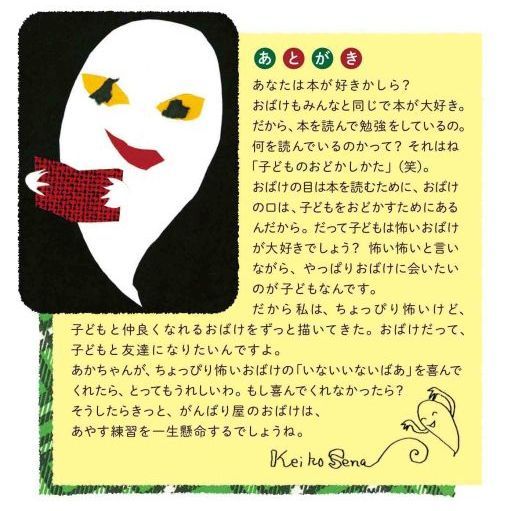 あとがき
あなたは本が好きかしら？
おばけもみんなと同じで本が大好き。
だから、本を読んで勉強をしているの。
何を読んでいるのかって？ それはね
「子どものおどかしかた」（笑）。
おばけの目は本を読むために、おばけ
の口は、子どもをおどかすためにある
んだから。だって子どもは怖いおばけ
が大好きでしょう？ 怖い怖いと言い
ながら、やっぱりおばけに会いたい
のが子どもなんです。
だから私は、ちょっぴり怖いけど、
子どもと仲良くなれるおばけをずっと描いてきた。おばけだって、
子どもと友達になりたいんですよ。
あかちゃんが、ちょっぴり怖いおばけの「いないいないばあ」を喜んで
くれたら、とってもうれしいわ。もし喜んでくれなかったら？
そうしたらきっと、がんばり屋のおばけは、
あやす練習を一生懸命するでしょうね。
Keiko Sena